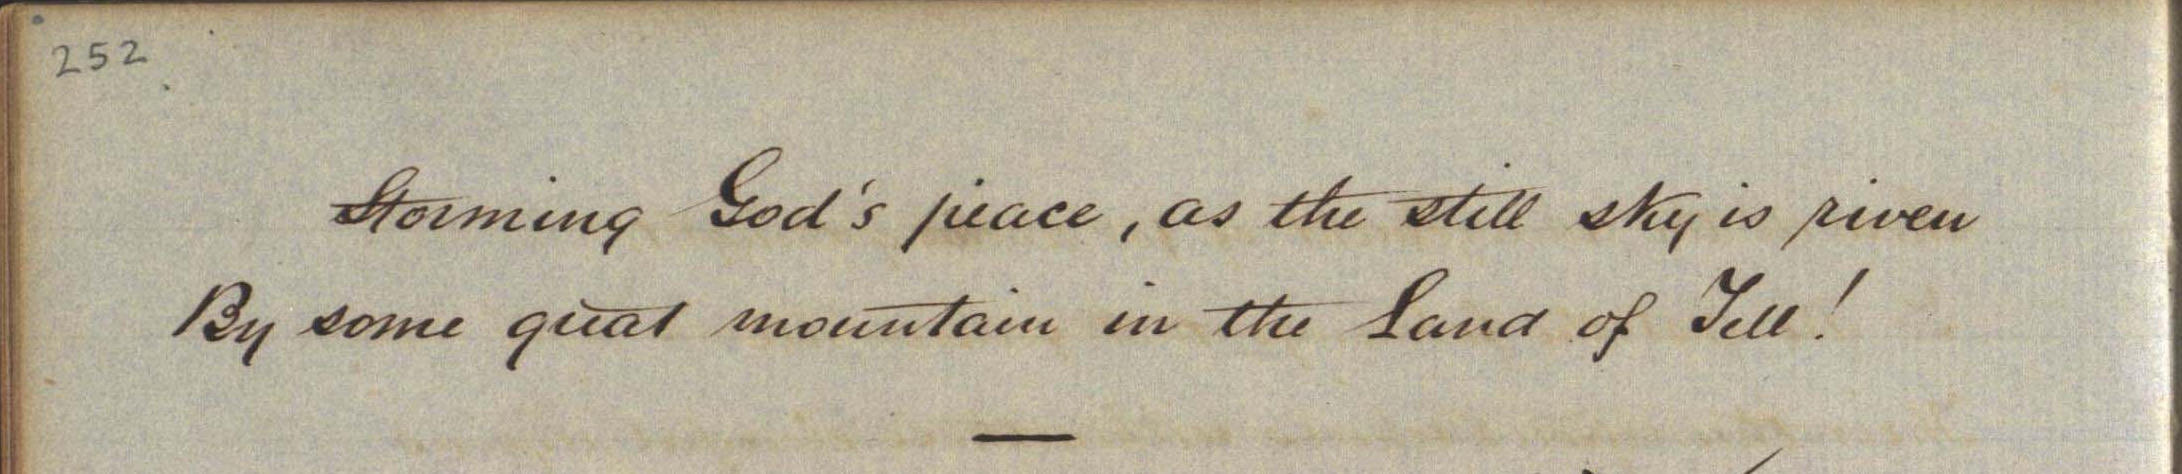 252
Storming God's peace, as the still sky is riven
By some great mountain in the Land of Tell!